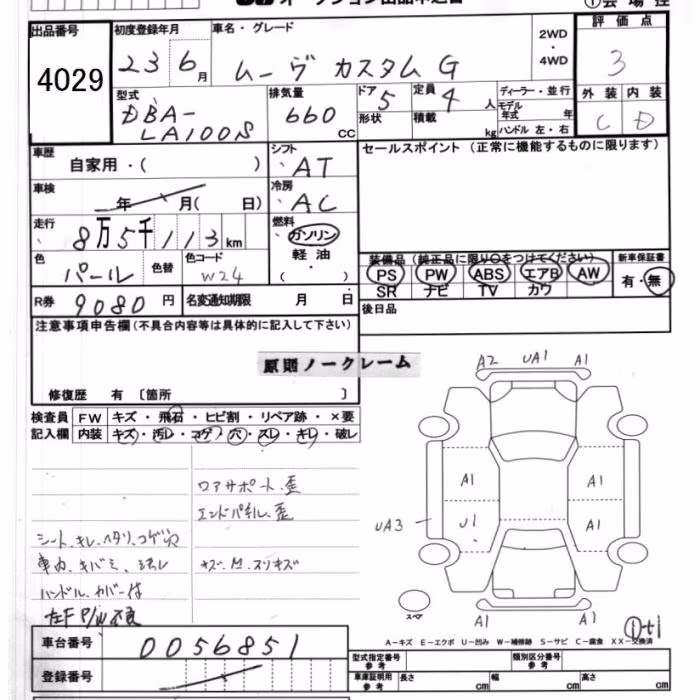 出品番号
4029
初度登録年月
23 6月
車名・グレード
ムーヴ カスタム G
2WD
・
4WD
評価点
3
型式
DBA-
LA100S
排気量
660 CC
ドア
5
定員
4 人
形状
積載
kg
ディーラー・並行
モデル
年式 年
ハンドル 左・右
外装 内装
C D
車歴
自家用・( )
シフト
AT
セールスポイント (正常に機能するものに限ります)
車検
年 月( 日)
冷房
AC
走行
8万5千113km
燃料
ガソリン
軽油
( ・ )
色
パール
色替
色コード
W24
装備品 (純正品に限り○をつけてください)
PS PW ABS エアB AW
SR ナビ TV カワ
新車保証書
有・無
R券 9080円
名変通知期限 月 日
後日品
注意事項申告欄(不具合内容等は具体的に記入して下さい)
原則ノークレーム
修復歴 有 〔箇所 〕
検査員 FW キズ・飛石・ヒビ割・リペア跡・×要
記入欄 内装 キズ・汚レ・コゲ・穴・スレ・キレ・破レ
A2 UA1 A1
A1 A1
UA3 U1 A1
A1 A1
ロアサポート、歪
エンドパネル、歪
シート、キレ、ヘタリ、コゲ穴
ハンドル、カバー付
左F P/W不良
A-キズ E-エクボ U-凹み W-補修跡 S-サビ C-腐食 XX-交換済
車台番号 0056851
登録番号
型式指定番号
参考
類別区分番号
参考
車庫証明用
参考
長さ cm 幅 cm 高さ cm